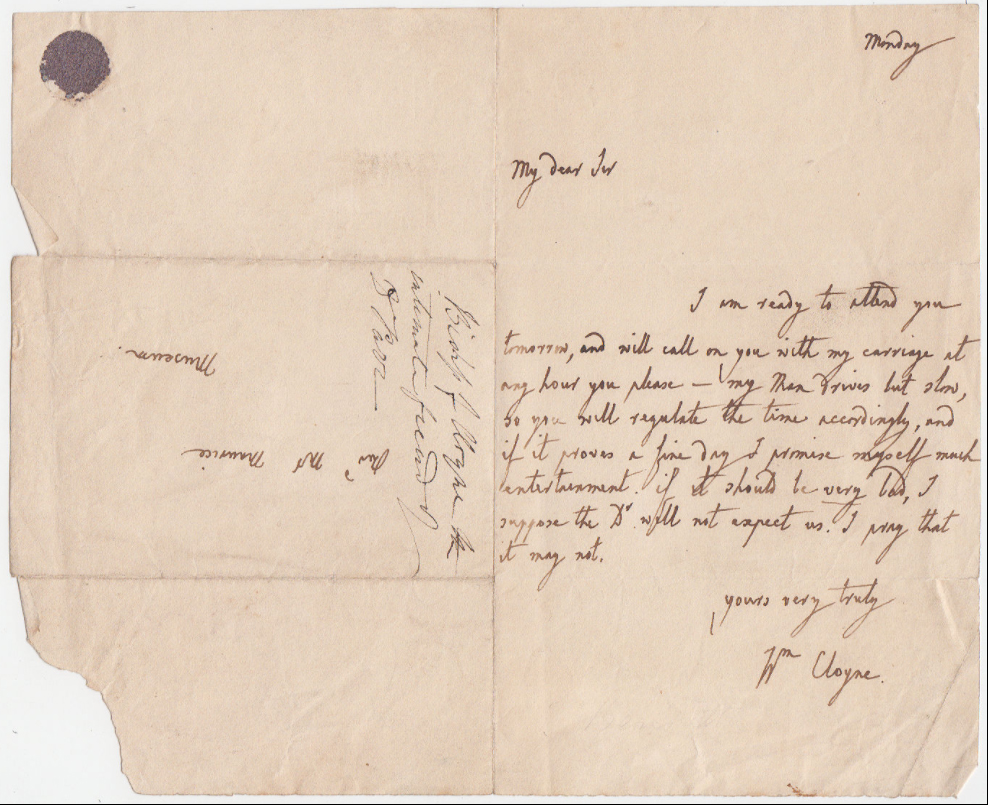 Monday
My dear Sir
I am ready to attend you
tomorrow, and will call on you with my carriage at
any hour you please – my Man drives but slow,
so you will regulate the time accordingly, and
if it proves a fine day I promise myself much
entertainment. if it should be very bad, I
suppose the Dr. will not expect us. I pray that
it may not.
yours very truly
Wm Cloyne.
Revd Mr Maurice
Museum.
Bishop of Cloyne the
intimate friend of
Dr Parr